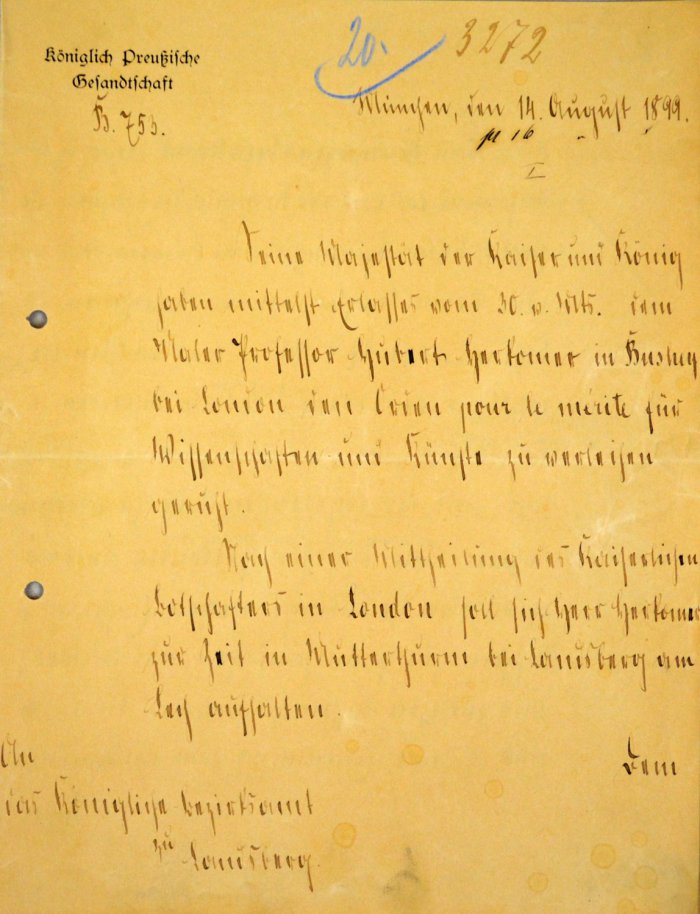 20.
3272
Königlich Preußische
Gesandtschaft
B. 753.
München, den 14. August 1899.
16
I
Seine Majestät der Kaiser und König
haben mittelst Erlasses vom 30. v. Mts. dem
Maler Professor Hubert Herkomer in Bushey
bei London den Orden pour le mérite für
Wissenschaften und Künste zu verleihen
geruht.
Nach einer Mittheilung des Kaiserlichen
Botschafters in London soll sich Herr Herkomer
zur Zeit in Mutterthurm bei Landsberg am
Lech aufhalten.
Dem
An
das Königliche Bezirksamt
zu
Landsberg.